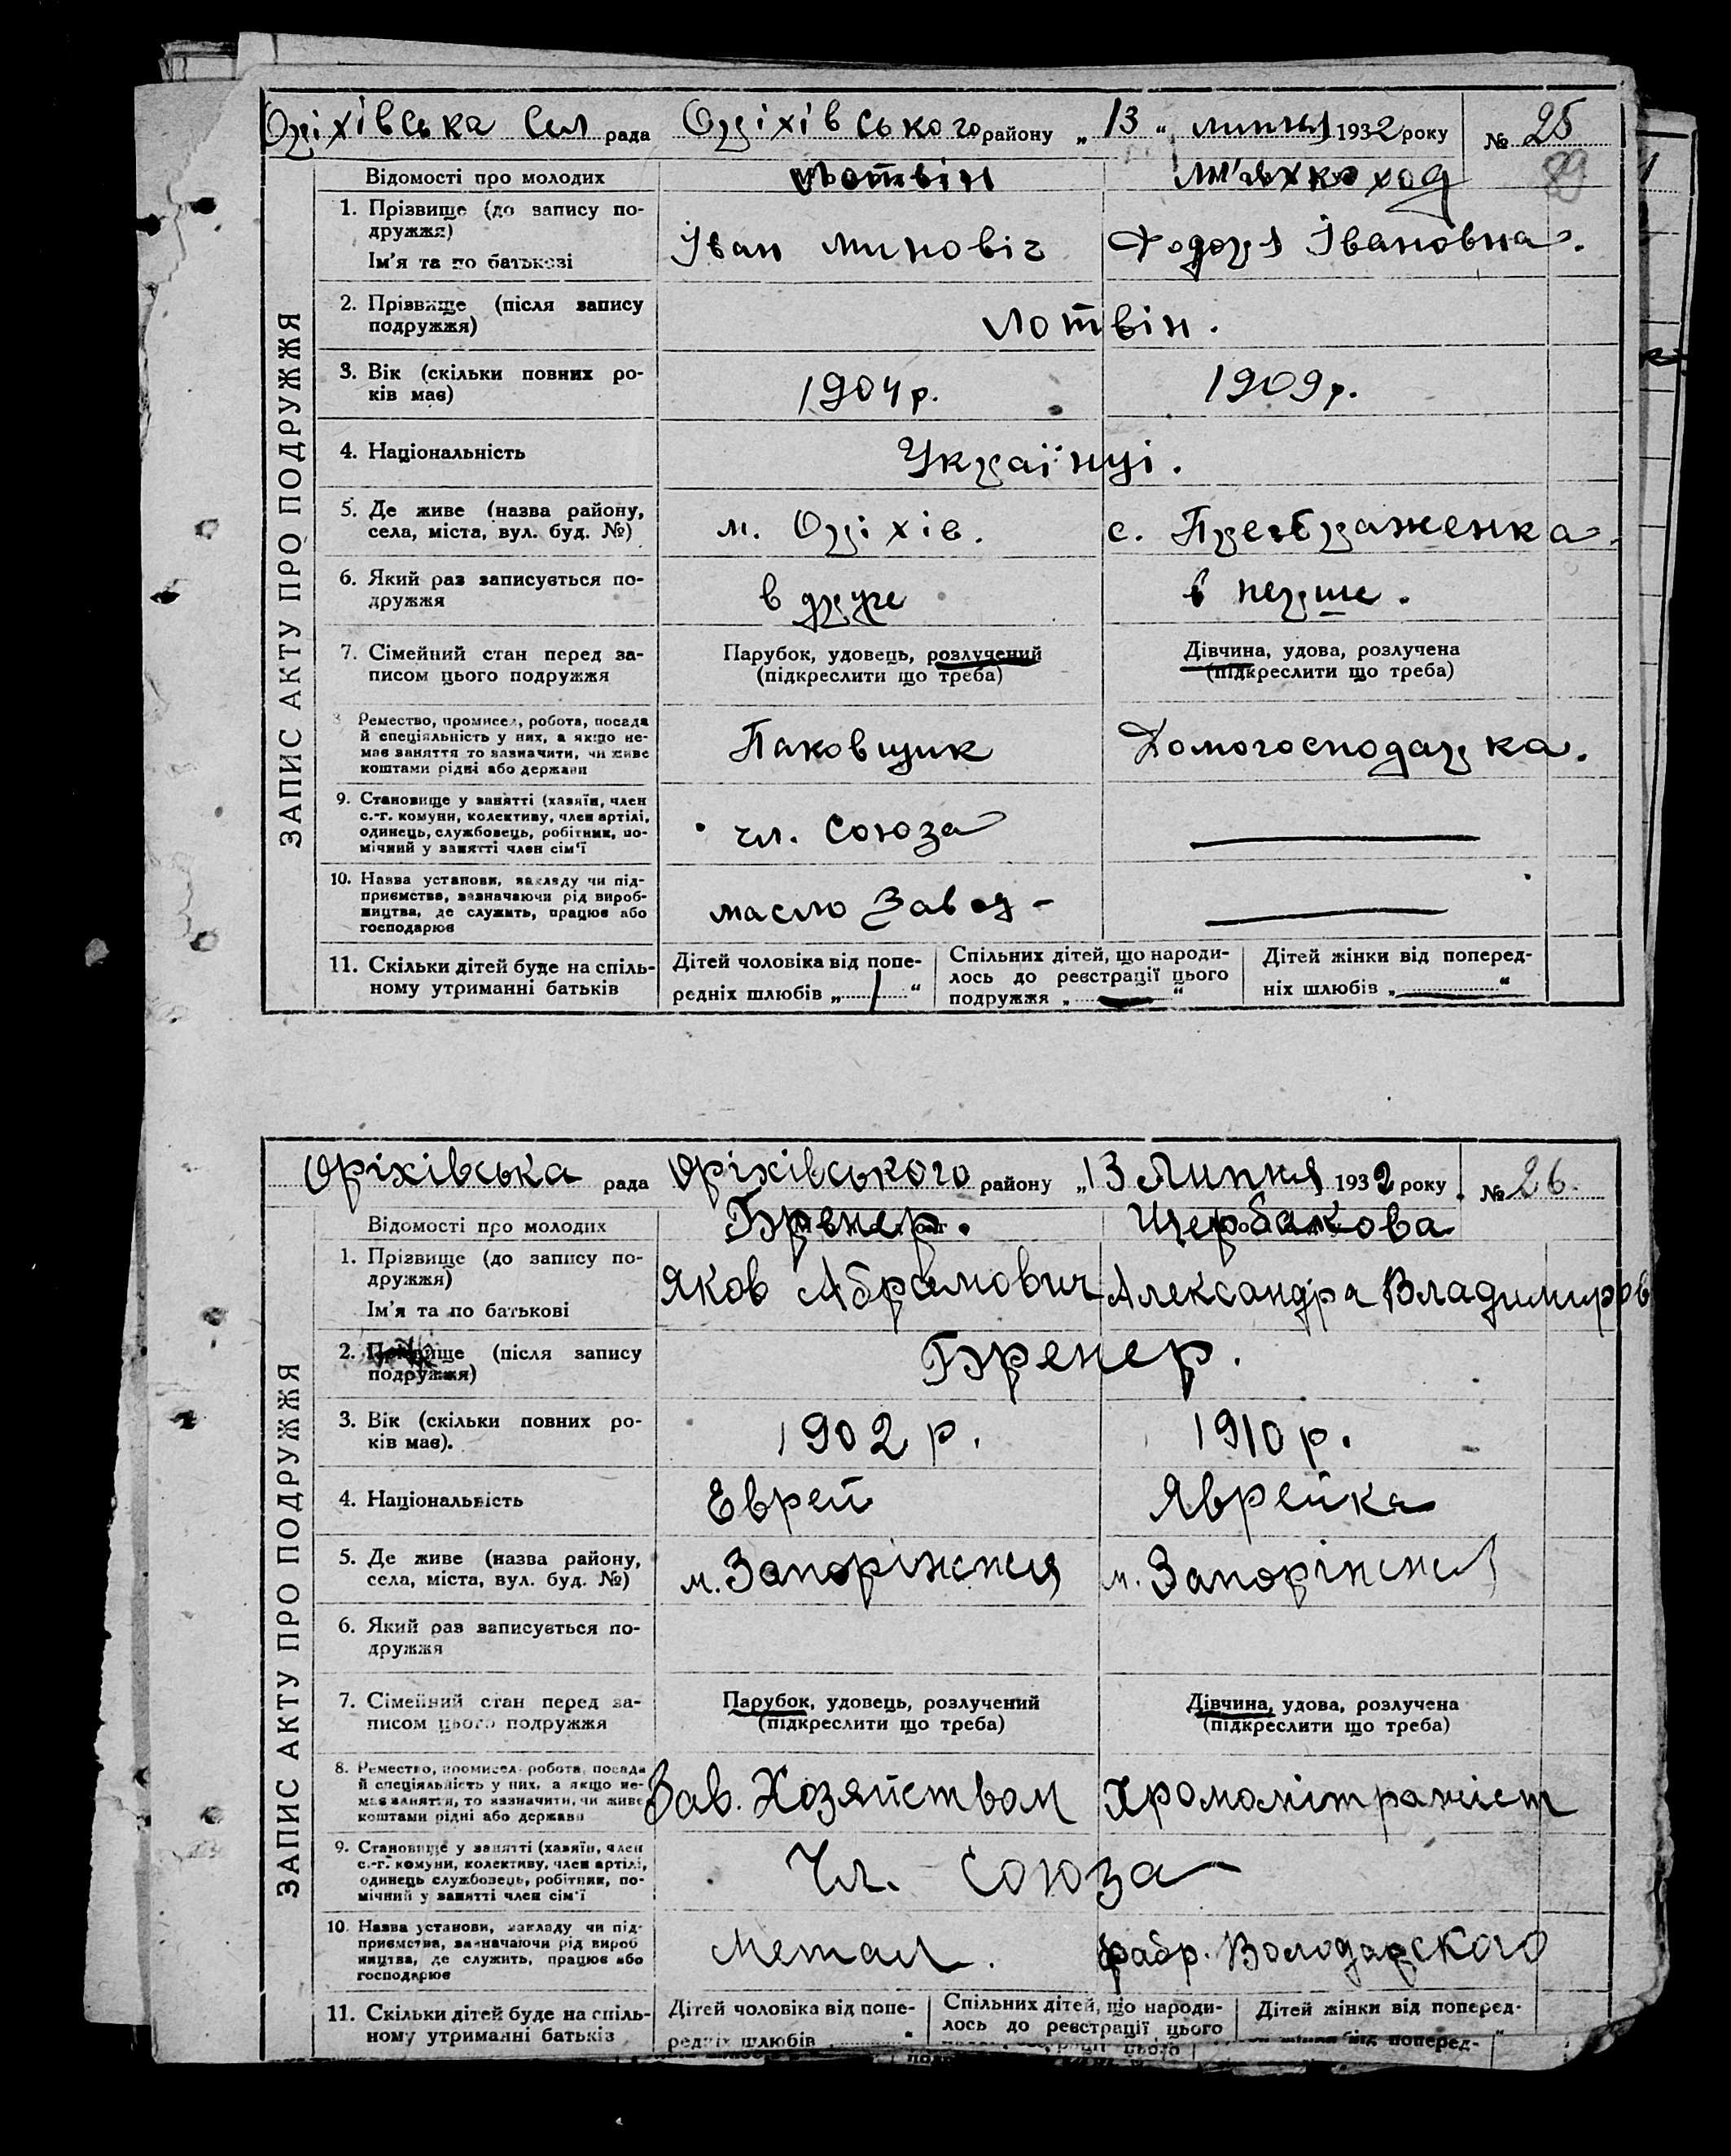 Оріхівська Сел рада Оріхівського району „13“ липня 1932 року № 25
89
Відомості про молодих Лотвін М'яхкоход
ЗАПИС АКТУ ПРО ПОДРУЖЖЯ
1. Прізвище (до запису по-
дружжя)
Ім'я та по батькові Іван Миновіч Ходоря Івановна.
2. Прізвище (після запису
подружжя) Лотвін.
3. Вік (скільки повних ро-
ків має) 1904р. 1909р.
4. Національність Українці.
5. Де живе (назва району,
села, міста, вул. буд. №) м. Оріхів. с. Преображенка.
6. Який раз записується по-
дружжя в друге в перше.
7. Сімейний стан перед за-
писом цього подружжя
Парубок, удовець, розлучений
(підкреслити що треба)
Дівчина, удова, розлучена
(підкреслити що треба)
8 Ремество, промисел, робота, посада
й спеціяльність у них, а якщо не-
має заняття то зазначити, чи живе
коштами рідні або держави
Паковщик Домогосподарка.
9. Становище у занятті (хазяїн, член
с.-г. комуни, колективу, член артілі,
одинець, службовець, робітник, по-
мічний у занятті член сім'ї
чл. Союза
10. Назва установи, закладу чи під-
приємства, зазначаючи рід вироб-
ництва, де служить, працює або
господарює
масло Завод -
11. Скільки дітей буде на спіль-
ному утриманні батьків
Дітей чоловіка від попе-
редніх шлюбів „ 1 “
Спільних дітей, що народи-
лось до реєстрації цього
подружжя „ — “
Дітей жінки від поперед-
ніх шлюбів „ — “
Оріхівська рада Оріхівського району „13 Липня 1932 року № 26.
Відомості про молодих Бренер. Щербакова
ЗАПИС АКТУ ПРО ПОДРУЖЖЯ
1. Прізвище (до запису по-
дружжя)
Ім'я та по батькові Яков Абрамович Александра Владимиров
2. Прізвище (після запису
подружжя) Бренер.
3. Вік (скільки повних ро-
ків має). 1902 р. 1910 р.
4. Національність Еврей Яврейка
5. Де живе (назва району,
села, міста, вул. буд. №) м. Запоріжжя м. Запоріжжя
6. Який раз записується по-
дружжя
7. Сімейний стан перед за-
писом цього подружжя
Парубок, удовець, розлучений
(підкреслити що треба)
Дівчина, удова, розлучена
(підкреслити що треба)
8. Ремество, промисел, робота, посада
й спеціяльність у них, а якщо не-
має заняття, то зазначити, чи живе
коштами рідні або держави
Зав. Хозяйством
9. Становище у занятті (хазяїн, член
с.-г. комуни, колективу, член артілі,
одинець службовець, робітник, по-
мічний у занятті член сім'ї
Чл. Союза
10. Назва установи, закладу чи під-
приємства, зазначаючи рід вироб
ництва, де служить, працює або
господарює
Метал. фабр. Володарского
11. Скільки дітей буде на спіль-
ному утриманні батьків
Дітей чоловіка від попе-
редніх шлюбів “
Спільних дітей, що народи-
лось до реєстрації цього
Дітей жінки від поперед-